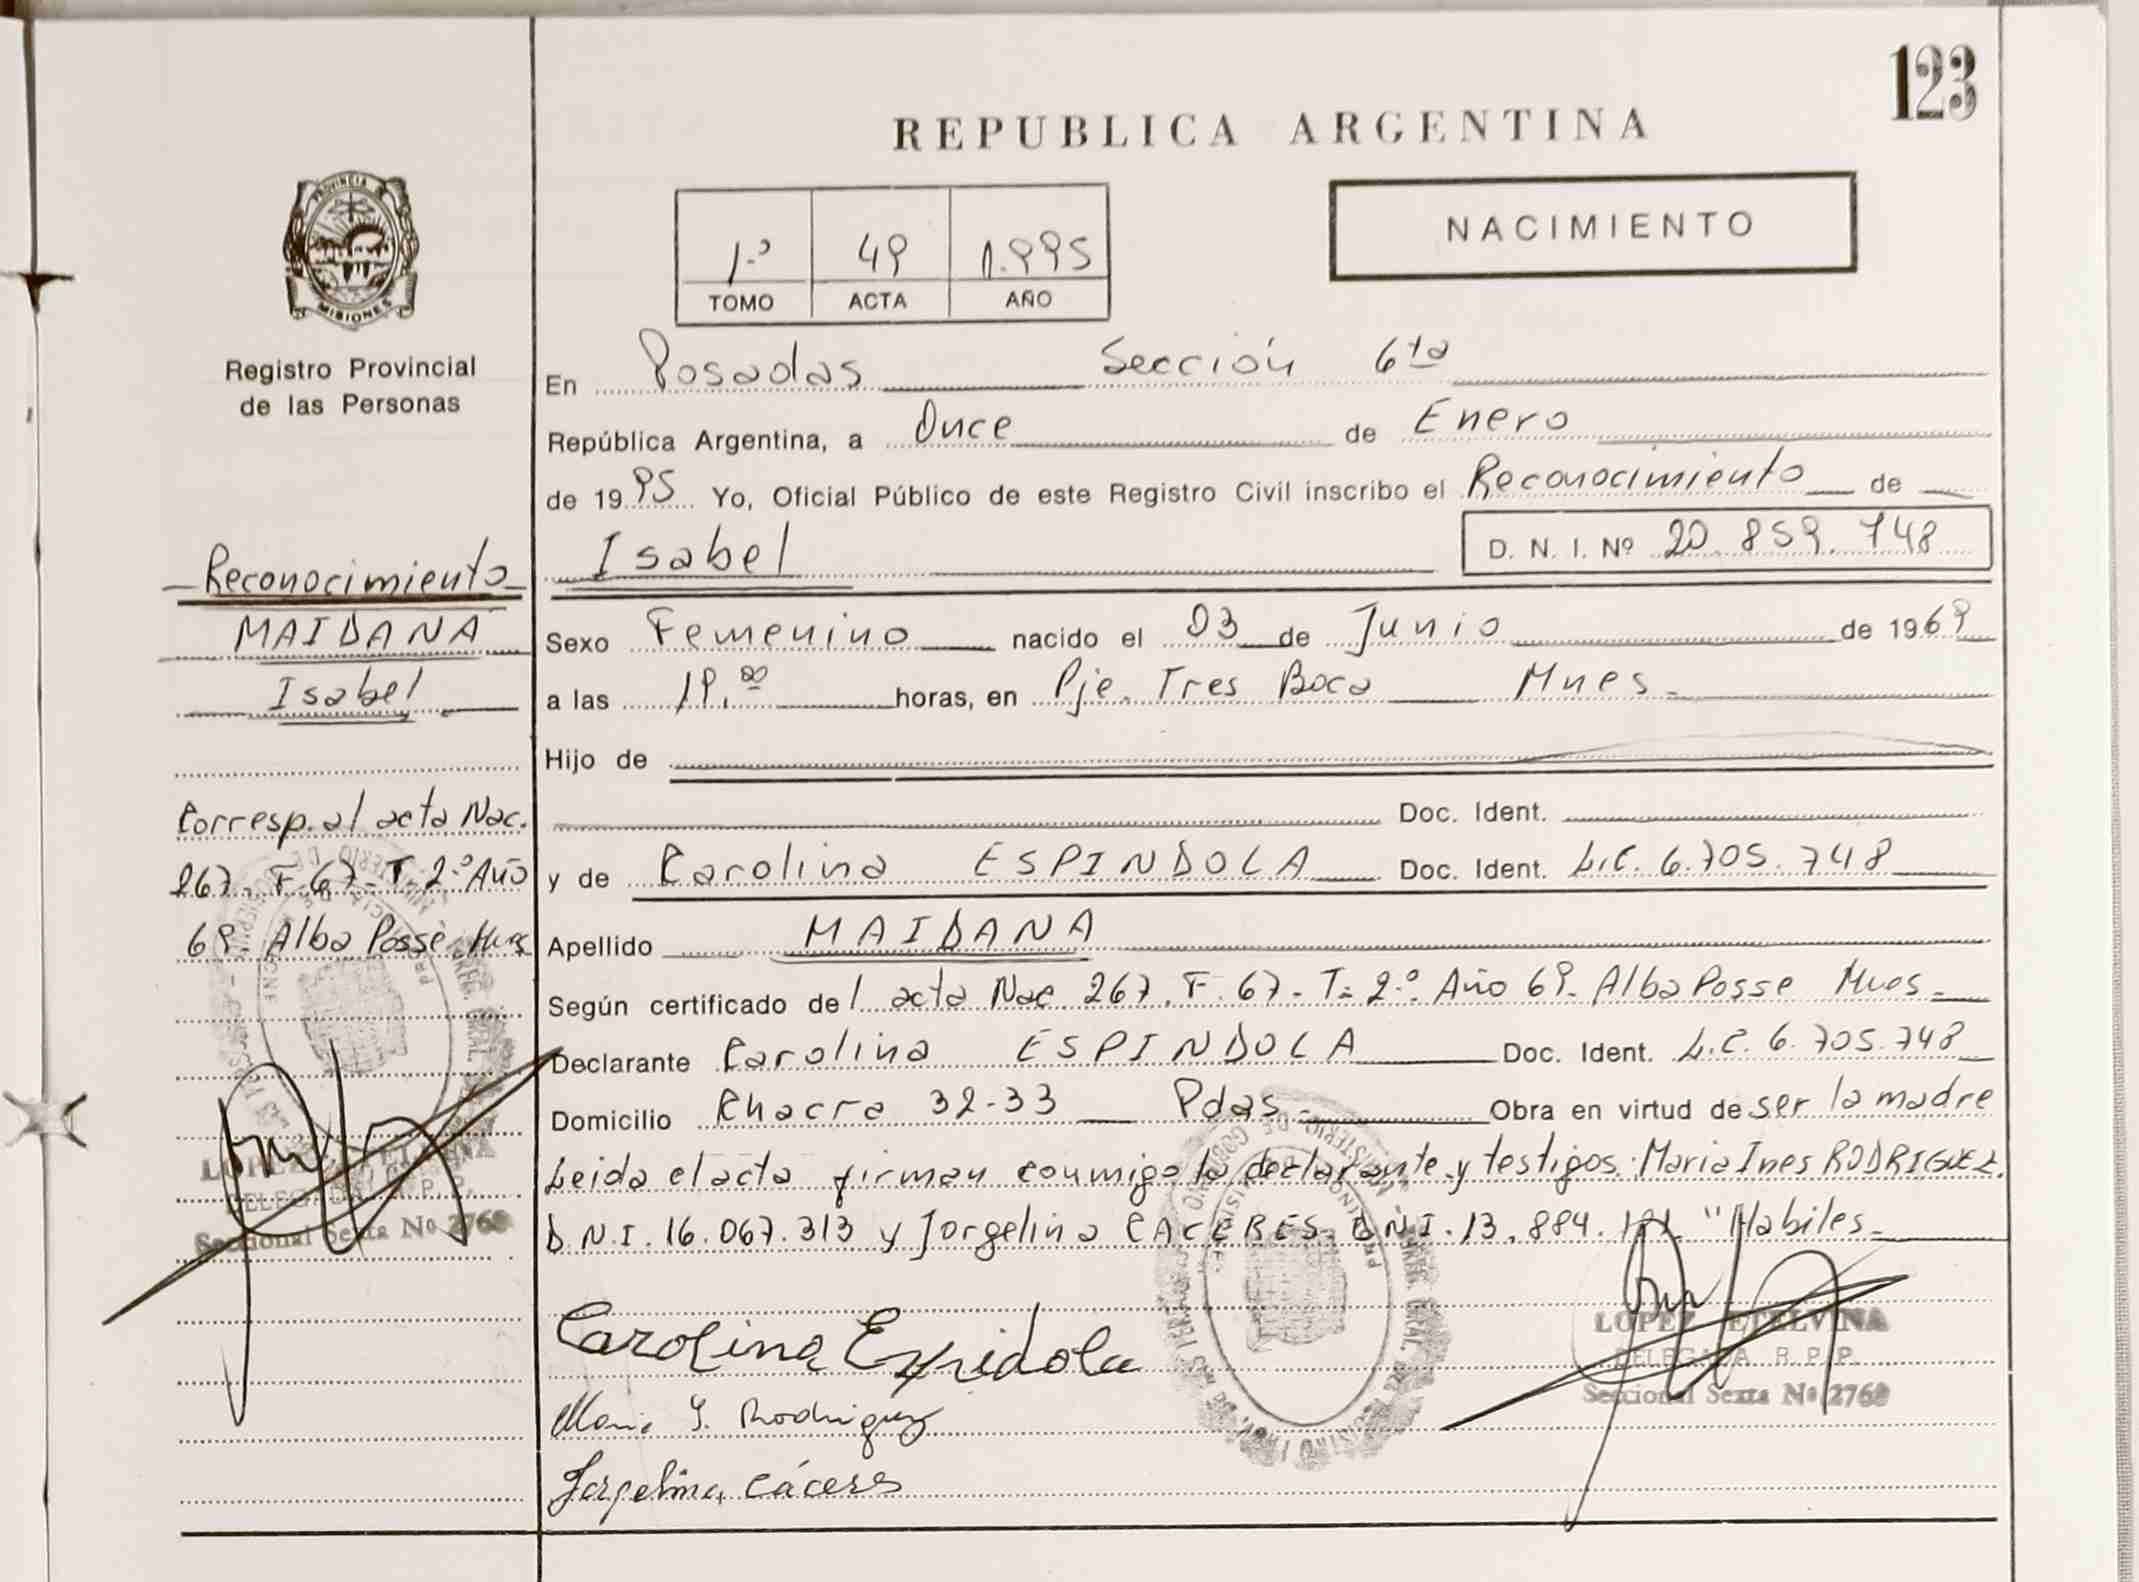 123
REPUBLICA ARGENTINA
NACIMIENTO
1.º 49 1.995
TOMO ACTA AÑO
PROVINCIA DE
MISIONES
Registro Provincial
de las Personas
Reconocimiento
MAIDANA
Isabel
Corresp. al acta Nac.
267. F. 67- T- 2º Año
69- Alba Posse. Mnes
LOPEZ ETELVINA
DELEGADA R. P. P.
Seccional Sexta Nº 2760
En Posadas Sección 6ta
República Argentina, a Once de Enero
de 1995 Yo, Oficial Público de este Registro Civil inscribo el Reconocimiento de
Isabel D. N. I. Nº 20.859.748
Sexo Femenino nacido el 03 de Junio de 1969
a las 19.00 horas, en Pje. Tres Boca Mnes-
Hijo de
Doc. Ident.
y de Carolina ESPINDOLA Doc. Ident. L.C. 6.705.748
Apellido MAIDANA
Según certificado del acta Nac 267. F. 67- T- 2.º Año 69- Alba Posse Mnes-
Declarante Carolina ESPINDOLA Doc. Ident. L.C. 6.705.748
Domicilio Chacra 32-33 Pdas- Obra en virtud de ser la madre
Leida el acta firman conmigo la declarante y testigos: Maria Ines RODRIGUEZ.
D.N.I. 16.067.313 y Jorgelina CACERES- D.N.I. 13.884.191 "Habiles-
Carolina Espidola
Maria I. Rodriguez
Jorgelina Cáceres
LOPEZ ETELVINA
DELEGADA R. P. P.
Seccional Sexta Nº 2760